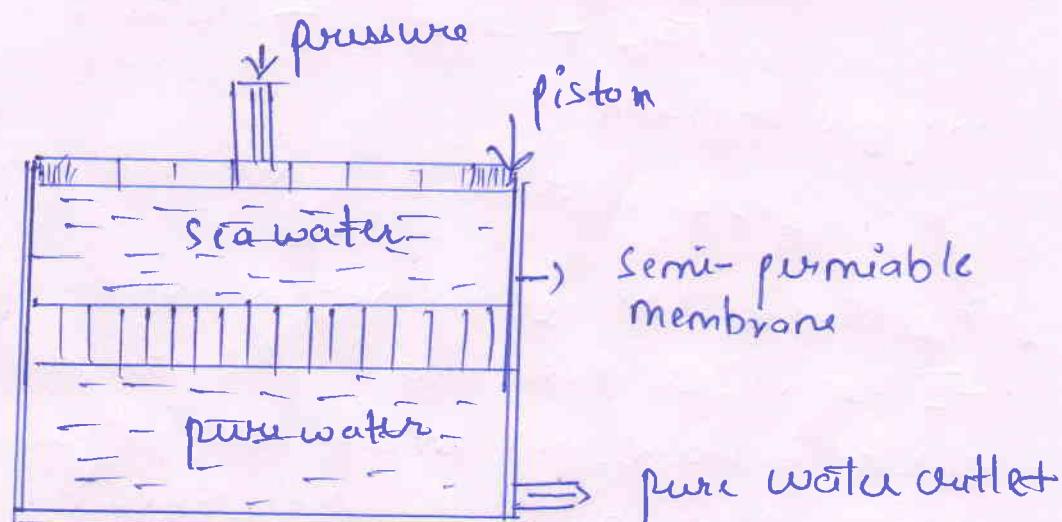 pressure
piston
sea water
semi-permiable
membrane
pure water
pure water outlet